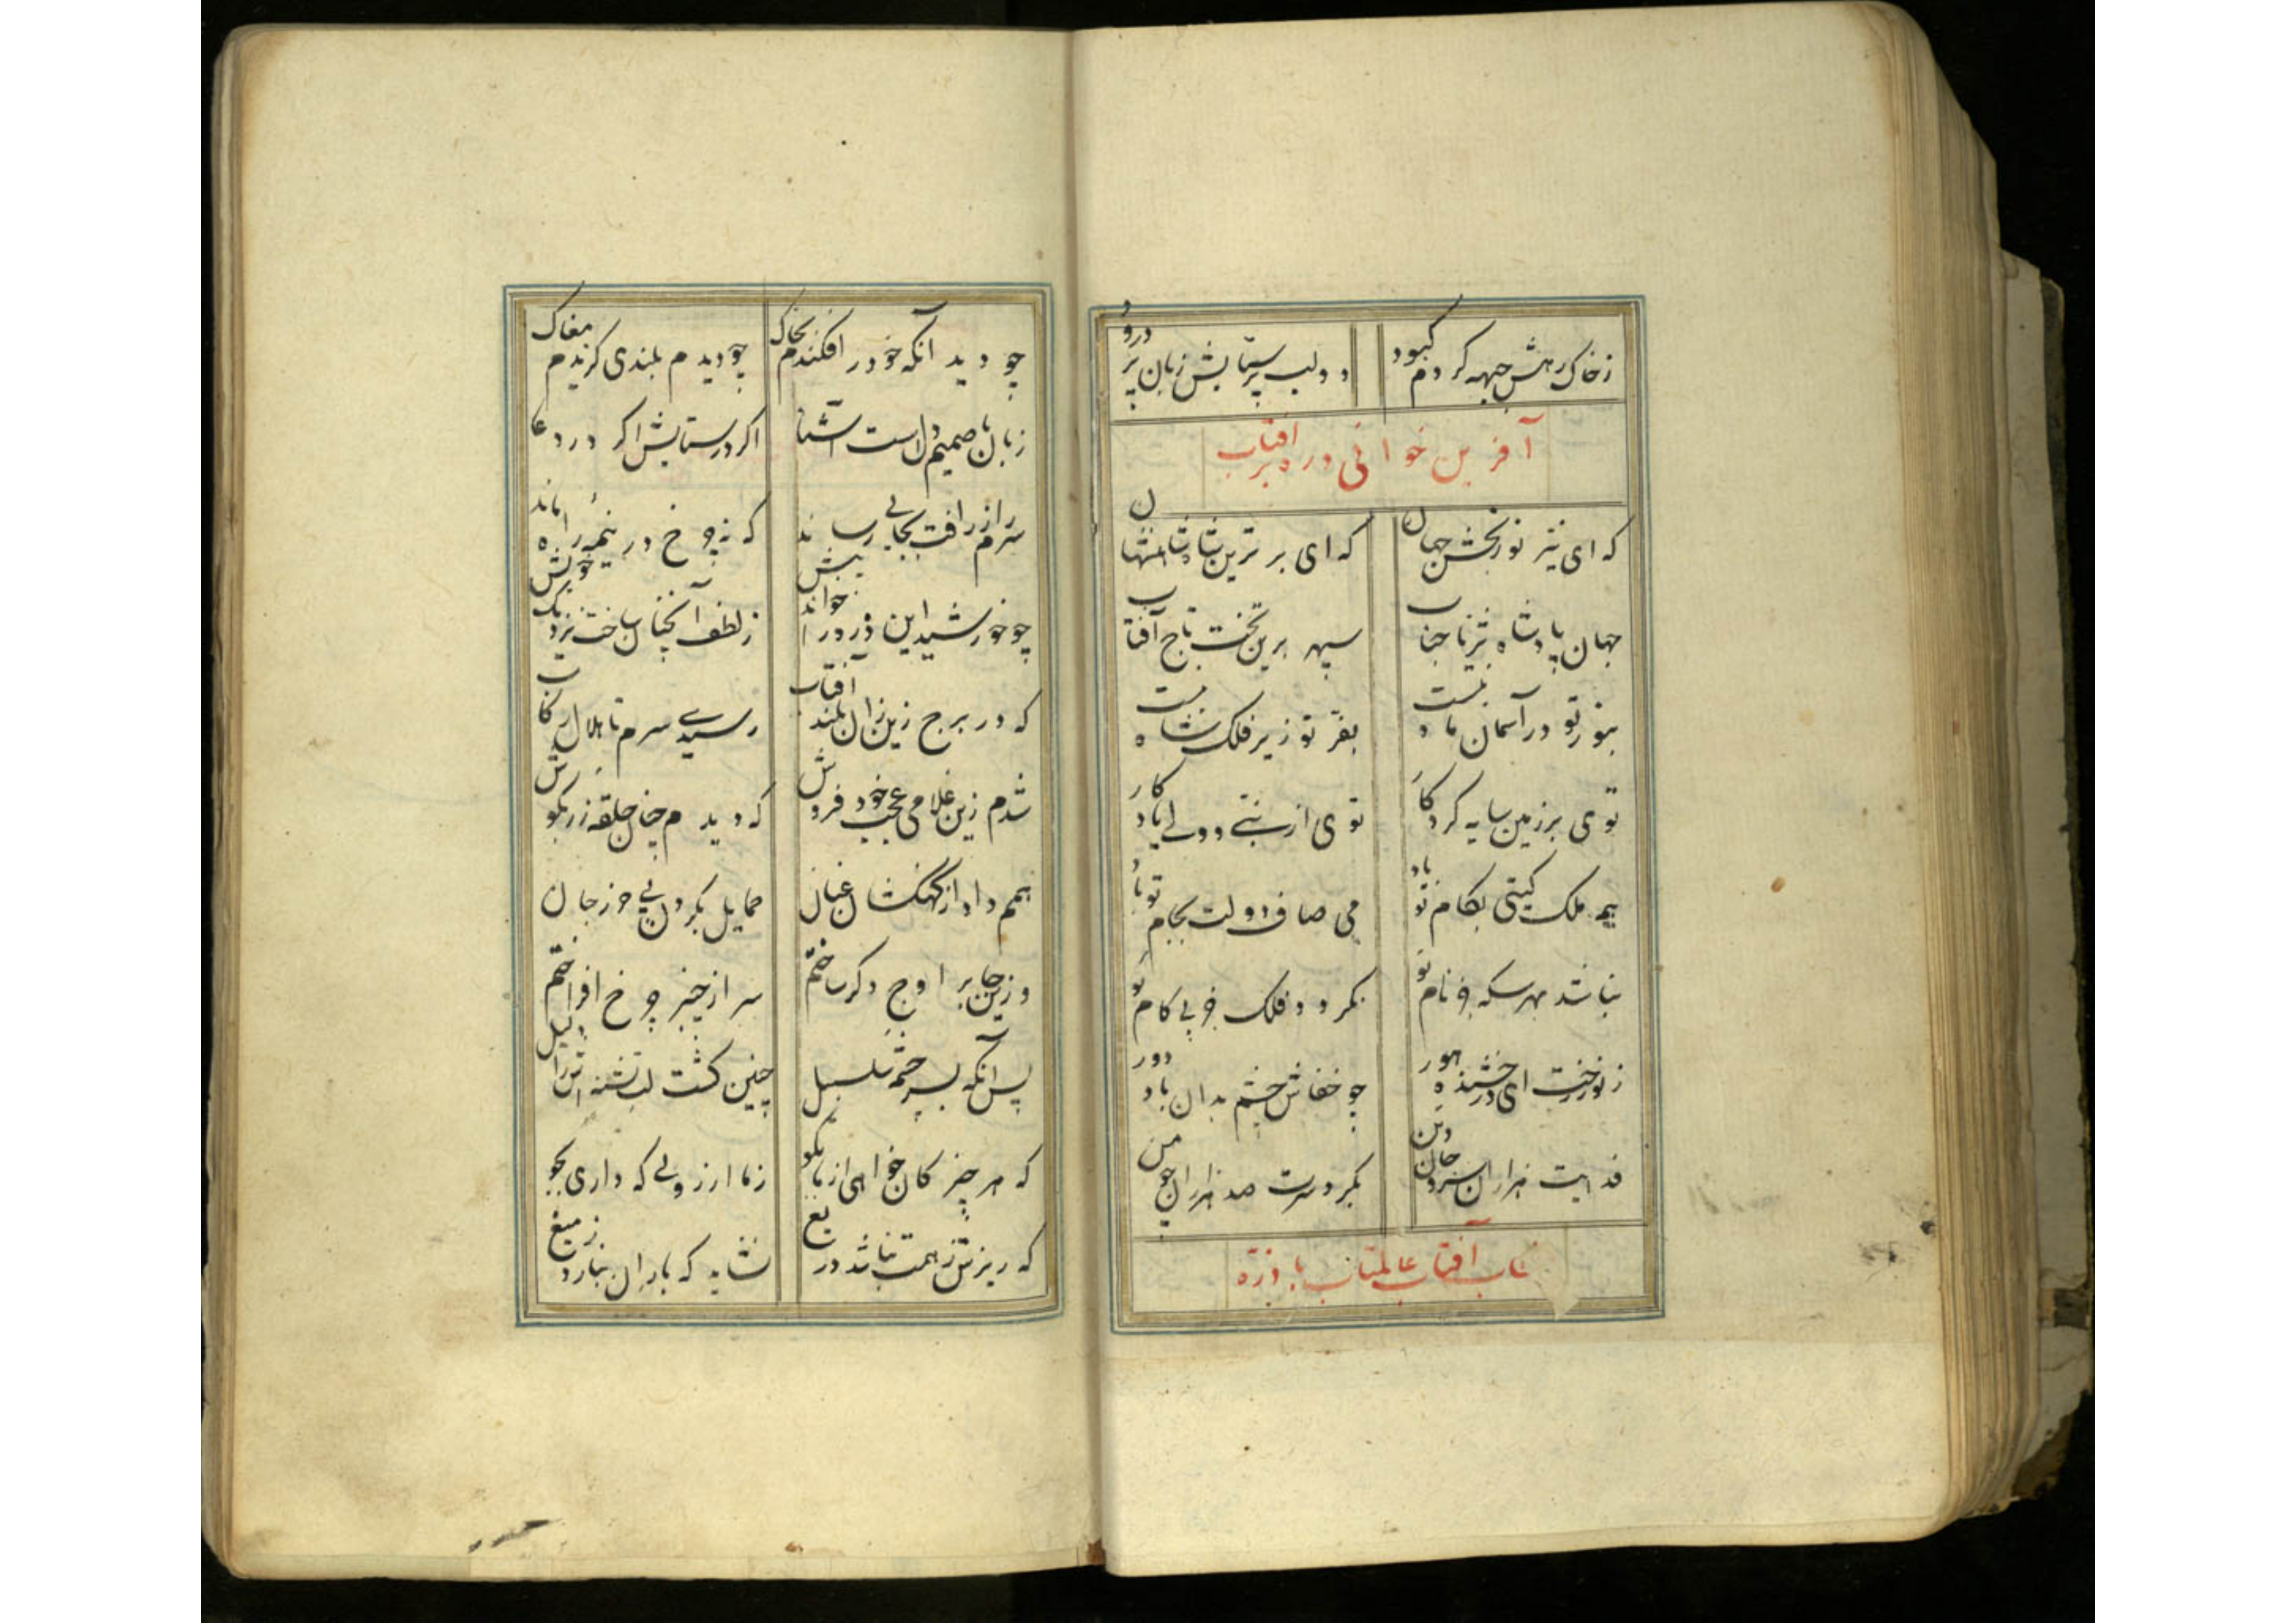 ز خاک رهش جبهه کردم کبود دو لب پر ستایش زبان پر درود
آفرین خوانی ذره بر آفتاب
که ای نیر نوربخش جهان که ای برترین شاه شاهنشهان
جهان پادشاه ثریا جناب سپهر برین تخت تاج آفتاب
بنور تو در آسمان ماه نیست بفر تو زیر فلک شاه نیست
توی بر زمین سایه کردکار توی از نبی و ولی یادکار
همه ملک کیتی بکام تو باد می صاف دولت بجام تو باد
نباشد بهر سکه جز نام تو نکردد فلک جز پی کام تو
ز نور رخت ای درخشنده هور چو خفاش چشم بدان باد دور
فدایت هزاران سر و جان و تن بکرد سرت صد هزاران چو من
آفتاب عالمتاب با ذره
چو دید آنکه خود را فکندم بخاک چو دیدم بلندی کزیدم مغاک
زبان با صمیم دلست آشنا اکر در ستایش اکر در دعا
سرم را ز رافت بجایی رساند که نه چرخ در نیمه راه ماند
چو خورشید این ذره را خواند پیش ز لطف آنچنان ساخت نزدیک خویش
که در برج زین زان بلند آفتاب رسیدی سرم تا هلال رکاب
شدم زین غلامی عجب خود فروش که دیدم چنان حلقه زر بکوش
بهم داد از کهکشان عنان حمایل بکردن پی حرز جان
وزین جا بر اوج دکر ساختم سر از چنبر چرخ افراختم
پس آنکه بسرچشمه سلسبیل چنین کشت لب تشنه را دلیل
که هر چیز کان خواهی از ما بکو ز ما ارزویی که داری بجو
که ریزش ز همت نباشد دریغ نشاید که باران نبارد ز میغ